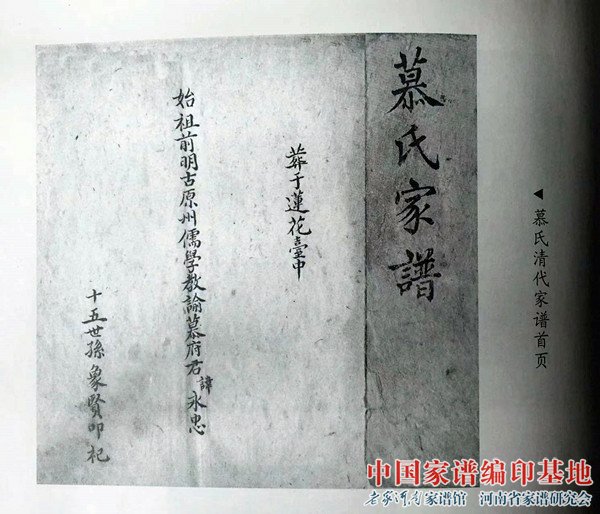 慕氏家譜
葬于蓮花臺中
始祖前明古原州儒學教諭慕府君諱永忠
十五世孫象賢叩祀
◀慕氏清代家谱首页
中国家谱编印基地
老家河南家谱馆 河南省家谱研究会